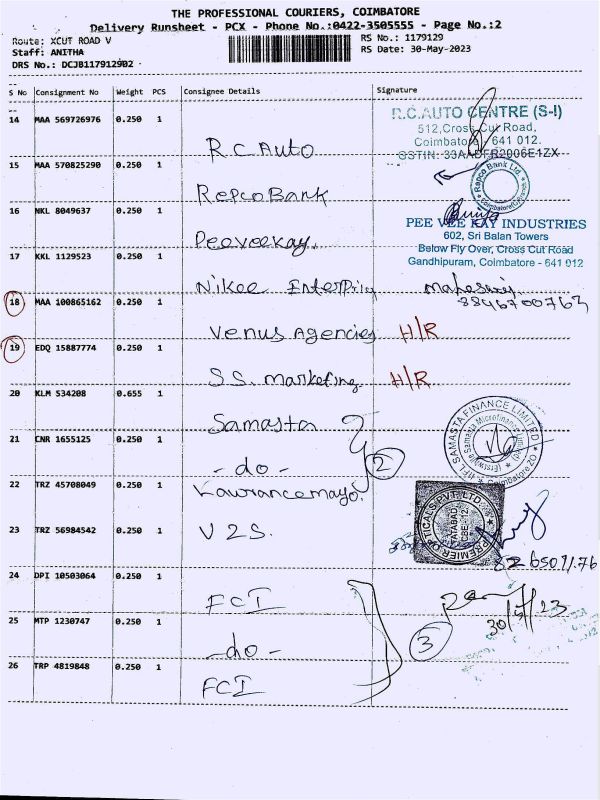 THE PROFESSIONAL COURIERS, COIMBATORE
Delivery Runsheet - PCX - Phone No.:0422-3505555 - Page No.:2
Route: XCUT ROAD V
RS No.: 1179129
Staff: ANITHA
RS Date: 30-May-2023
DRS No.: DCJB117912902
S No Consignment No Weight PCS Consignee Details Signature
14 MAA 569726976 0.250 1
R.C Auto
R.C.AUTO CENTRE (S-I)
512,Cross Cut Road,
Coimbatore 641 012.
15 MAA 570825290 0.250 1
Repco Bank
Repco Bank Ltd.
Coimbatore
16 NKL 8049637 0.250 1
Peeveekay.
PEE VEE KAY INDUSTRIES
602, Sri Balan Towers
Below Fly Over, Cross Cut Road
Gandhipuram, Coimbatore - 641 012
17 KKL 1129523 0.250 1
Nikee
18 MAA 100865162 0.250 1
Venus Agencies H/R
19 EDQ 15887774 0.250 1
S.S. marketing H/R
20 KLM 534208 0.655 1
Samasta
IIFL SAMASTA FINANCE LIMITED
21 CNR 1655125 0.250 1
- do - 2
22 TRZ 45708049 0.250 1
Lawrancemayo.
PREMIER OPTICALS PVT. LTD.
TATABAD
CBE-12.
23 TRZ 56984542 0.250 1
V 2 S.
24 DPI 10503064 0.250 1
FCI
30/5/23
25 MTP 1230747 0.250 1
- do - 3
26 TRP 4819848 0.250 1
FCI